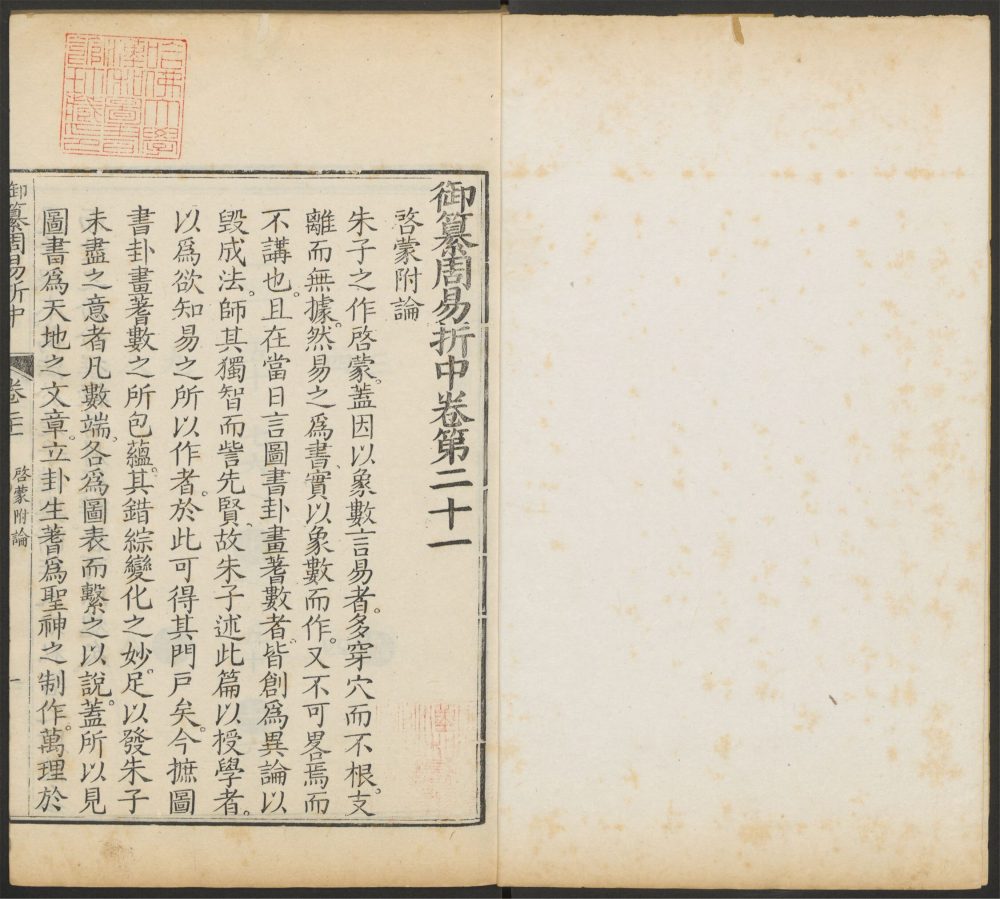 御纂周易折中卷第二十一
啓蒙附論
朱子之作啓蒙。蓋因以象數言易者。多穿穴而不根。支
離而無據。然易之爲書、實以象數而作。又不可畧焉而
不講也。且在當日言圖書卦畫蓍數者。皆創爲異論以
毀成法。師其獨智而訾先賢、故朱子述此篇以授學者。
以爲欲知易之所以作者。於此可得其門戸矣。今摭圖
書卦畫蓍數之所包蘊。其錯綜變化之妙。足以發朱子
未盡之意者凡數端。各爲圖表而繫之以說。蓋所以見
圖書爲天地之文章。立卦生蓍爲聖神之制作。萬理於
御纂周易折中
卷二十一
啓蒙附論
一
哈佛大學
漢和圖書
館珍藏印